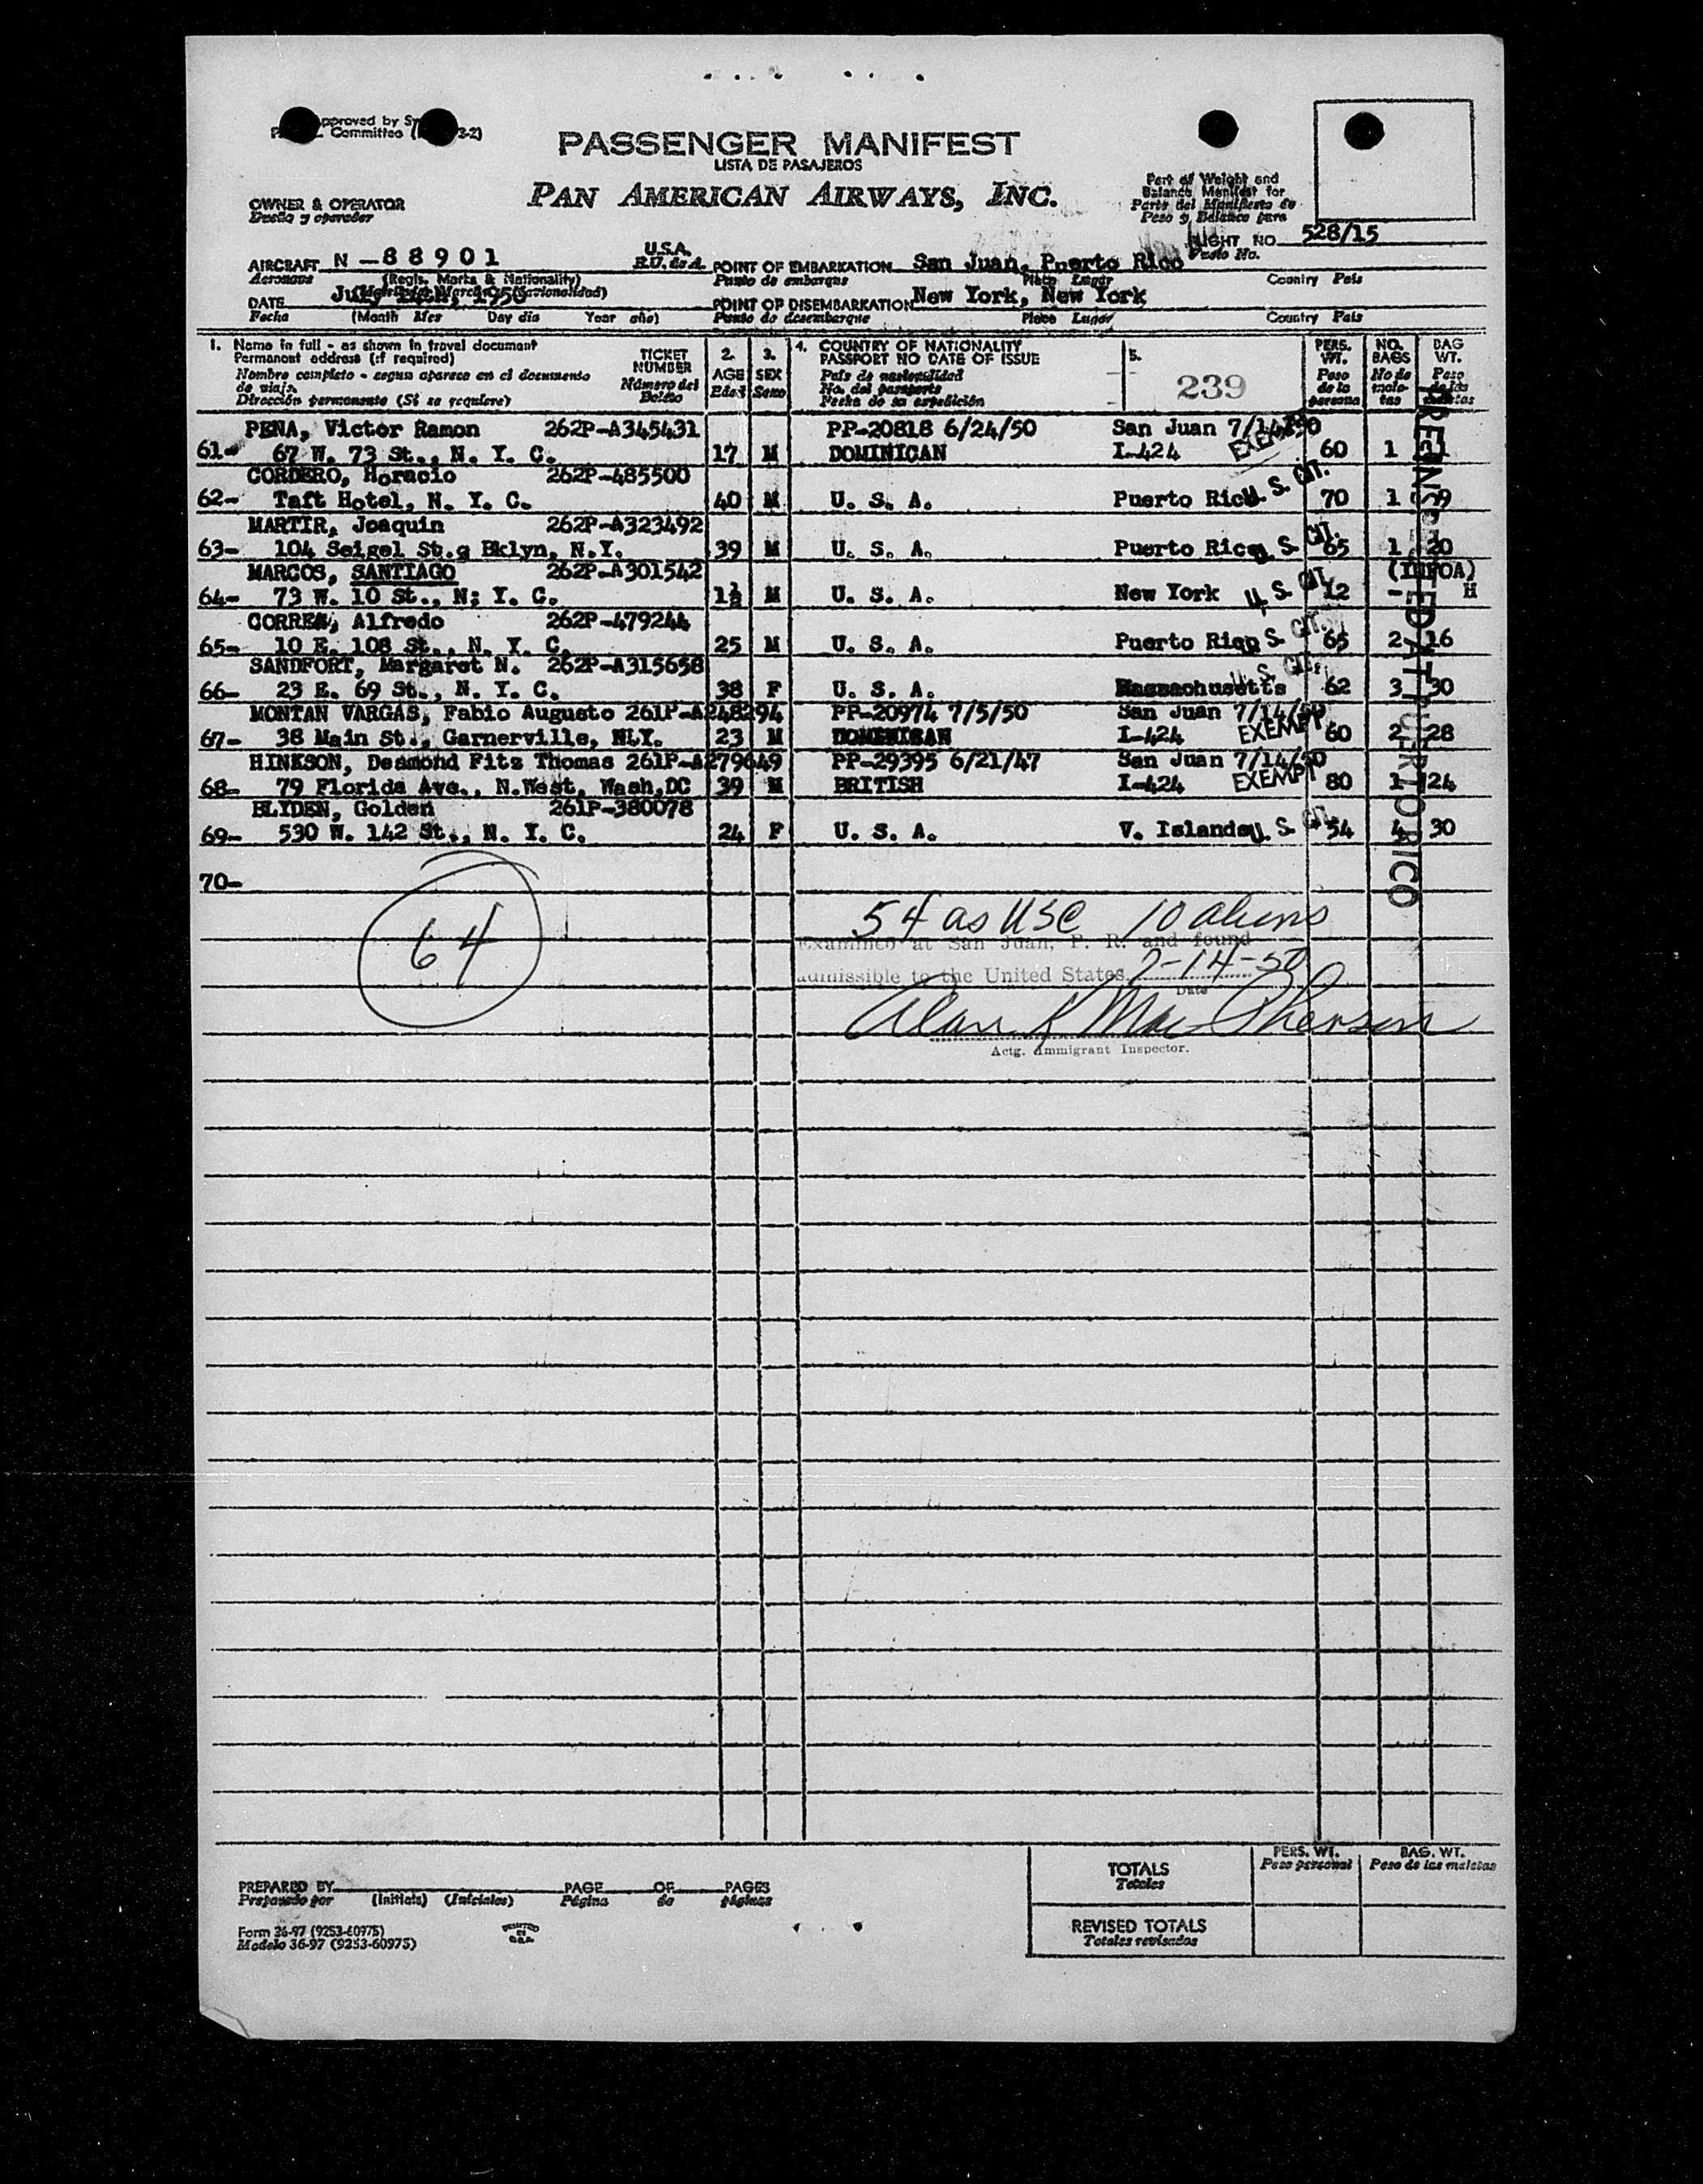 pproved by
Committee 3-2)
PASSENGER MANIFEST
LISTA DE PASAJEROS
PAN AMERICAN AIRWAYS, INC.
OWNER & OPERATOR
Dueño y operador
Part of Weight and
Balance Manifest for
Parte del Manifiesto de
Peso y Balance para
FLIGHT NO. 528/15
Vuelo No.
AIRCRAFT N-88901 U.S.A.
Aeronave (Regis. Marks & Nationality) E.U. de A.
POINT OF EMBARKATION San Juan, Puerto Rico
Punto de embarque Place Lugar Country País
DATE July 14th, 1950
Fecha (Month Mes Day día Year año)
POINT OF DISEMBARKATION New York, New York
Punto de desembarque Place Lugar Country País
1. Name in full - as shown in travel document
Permanent address (if required)
Nombre completo - segun aparece en el documento
de viaje.
Dirección permanente (Si se requiere)
TICKET
NUMBER
Número del
Boleto
2.
AGE
Edad
3.
SEX
Sexo
4. COUNTRY OF NATIONALITY
PASSPORT NO DATE OF ISSUE
País de nacionalidad
No. del pasaporte
Fecha de su expedición
5.
239
PERS.
WT.
Peso
de la
persona
NO.
BAGS
No de
male-
tas
BAG
WT.
Peso
de las
maletas
PENA, Victor Ramon 262P-A345431 PP-20818 6/24/50 San Juan 7/14/50
61- 67 W. 73 St., N. Y. C. 17 M DOMINICAN I-424 EXEMPT 60 1
CORDERO, Horacio 262P-485500
62- Taft Hotel, N. Y. C. 40 M U. S. A. Puerto Rico U. S. CIT. 70 1 9
MARTIR, Joaquin 262P-A323492
63- 104 Seigel St.g Bklyn, N.Y. 39 M U. S. A. Puerto Rico U. S. CIT. 65 1 20
MARCOS, SANTIAGO 262P-A301542 (INFOA)
64- 73 W. 10 St., N; Y. C. 1½ M U. S. A. New York U. S. CIT. 12 - H
CORREA, Alfredo 262P-479244
65- 10 E. 108 St., N. Y. C. 25 M U. S. A. Puerto Rico U. S. CIT. 65 2 16
SANDFORT, Margaret N. 262P-A315658
66- 23 E. 69 St., N. Y. C. 38 F U. S. A. Massachusetts U. S. CIT. 62 3 30
MONTAN VARGAS, Fabio Augusto 261P-A248294 PP-20974 7/5/50 San Juan 7/14/50
67- 38 Main St., Garnerville, N.Y. 23 M DOMINICAN I-424 EXEMPT 60 2 28
HINKSON, Desmond Fitz Thomas 261P-A279649 PP-29395 6/21/47 San Juan 7/14/50
68- 79 Florida Ave., N.West, Wash,DC 39 M BRITISH I-424 EXEMPT 80 1 24
BLYDEN, Golden 261P-380078
69- 530 W. 142 St., N. Y. C. 24 F U. S. A. V. Islands U. S. CIT. 54 4 30
70-
PREINSPECTED AT PUERTO RICO
64
54 as USC 10 aliens
Examined at San Juan, P. R. and found
admissible to the United States 7-14-50
Date
Alan K MacPherson
Actg. Immigrant Inspector.
TOTALS
Totales
PERS. WT.
Peso personal
BAG. WT.
Peso de las maletas
REVISED TOTALS
Totales revisados
PREPARED BY PAGE OF PAGES
Preparado por (Initials) (Iniciales) Página de páginas
Form 36-97 (9253-60975)
Modelo 36-97 (9253-60975)
PRINTED
IN
U.S.A.